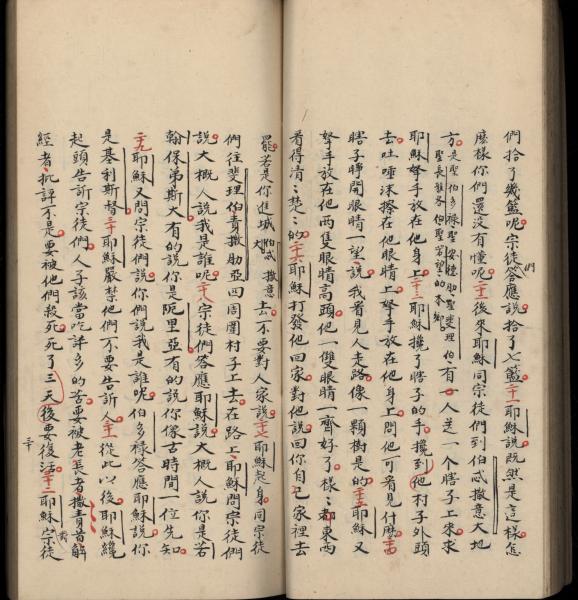 們拾了幾籃呢宗徒答應說拾了七籃二十一耶穌說既然是這樣怎
們
麼樣你們還沒有懂呢二十二後來耶穌同宗徒們到伯忒撒意大地
方是聖伯多祿聖安德肋聖斐理伯聖長雅各伯聖若望的本鄉有一人送一個瞎子上來求
耶穌拏手放在他身上二十三耶穌攙了瞎子的手攙到他村子外頭
去吐唾沫搽在他眼睛上拏手放在他身上問他可看見什麼二十四
瞎子睜開眼睛一望說我看見人走路像一顆樹是的二十五耶穌又
拏手放在他兩隻眼睛高頭他一雙眼睛一齊好了樣樣都東西
看得清清楚楚的二十六耶穌打發他回家對他說回你自己家裡去
罷若是你進城伯忒撒意大去不要對人家說二十七耶穌起身同宗徒
們往斐理伯責撒肋亞四周圍村子上去在路上耶穌問宗徒們
說大概人說我是誰呢二十八宗徒們答應耶穌說大概人說你是若
翰保弟斯大有的說你是阨里亞有的說你像古時間一位先知
二十九耶穌又問宗徒們說你們說我是誰呢伯多祿答應耶穌說你
是基利斯督三十耶穌嚴禁他們不要告訴人三十一從此以後耶穌纔
起頭告訴宗徒們人子該當吃許多的苦要被老長者撒責爾
經者批評不是要被他們殺死死了三天後要復活三十二耶穌宗徒
三十